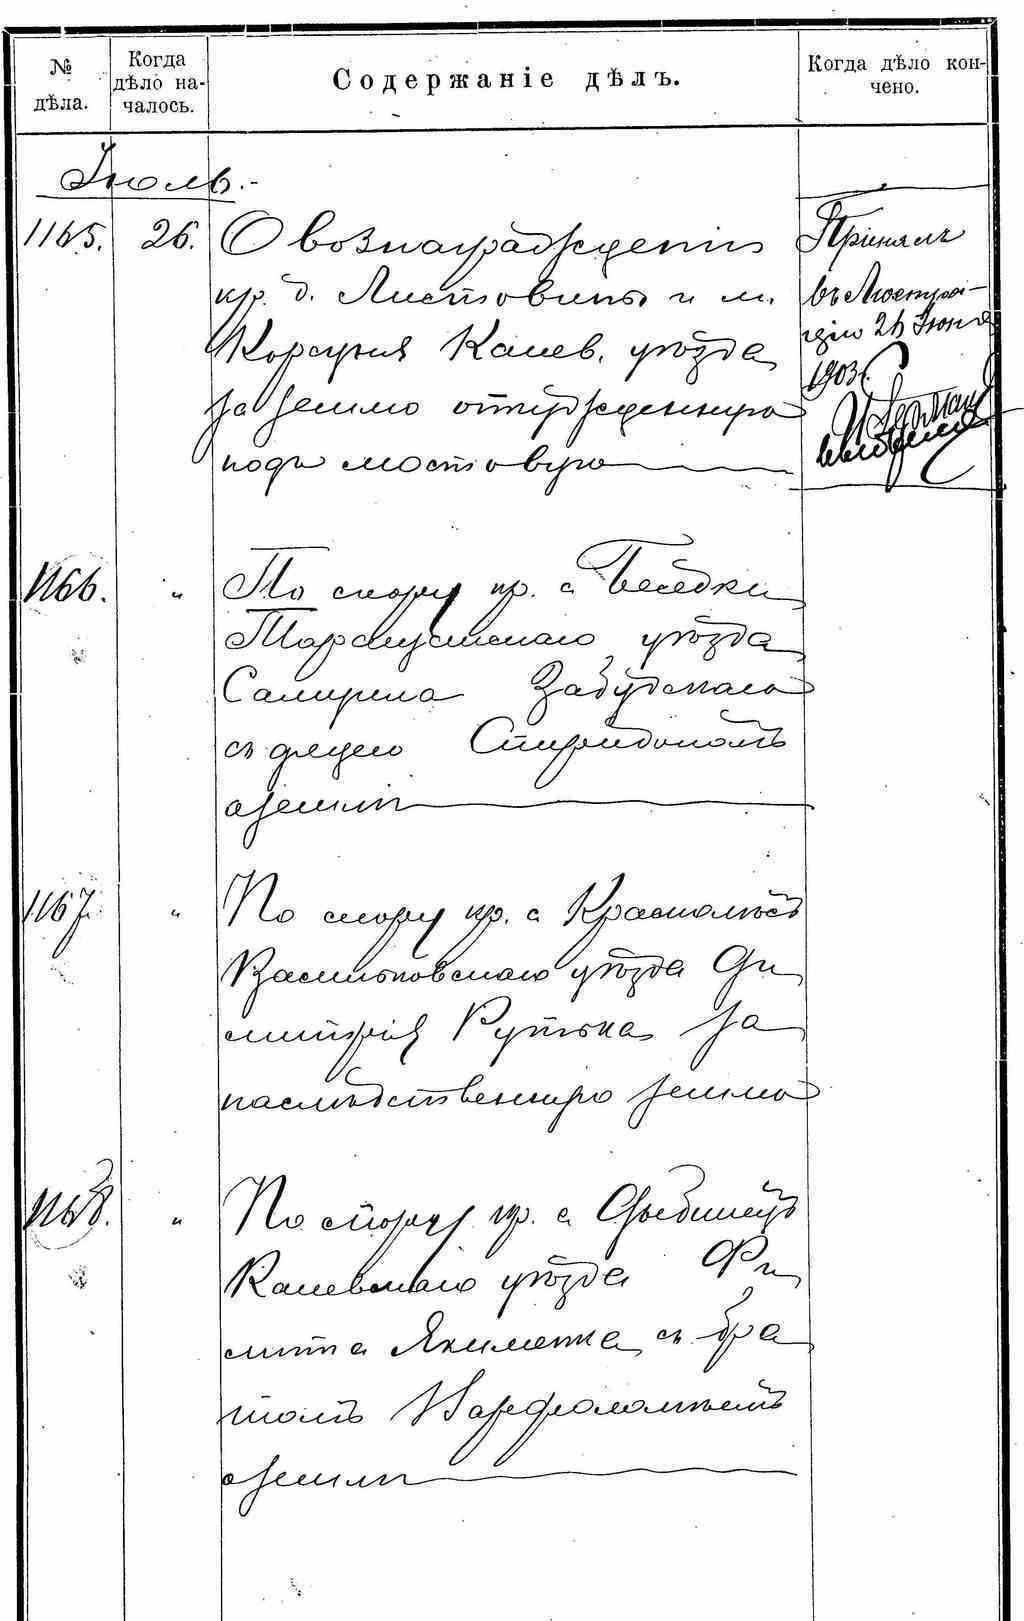 № дѣла.
Когда дѣло на-
чалось.
Содержаніе дѣлъ.
Когда дѣло кон-
чено.
Іюль.-
1165. 26. О вознагражденіи
кр. д. Листовины и м.
Корсуня Канев. уѣзда
за землю отчужденную
подъ мостовую
Принялъ
26 Іюня
1903 г.
1166. " По спору кр. с. Бесѣдки
Таращанскаго уѣзда
Забудскаго
съ дядею Спиридономъ
о земли
1167. " По спору кр. с. Краснолѣсъ
Васильковскаго уѣзда Ди
митрія Рутька за
наслѣдственную землю
1168. " По спору кр. с.
Каневскаго уѣзда Фи
липпа Якименка съ бра
томъ Варфоломѣемъ
о земли